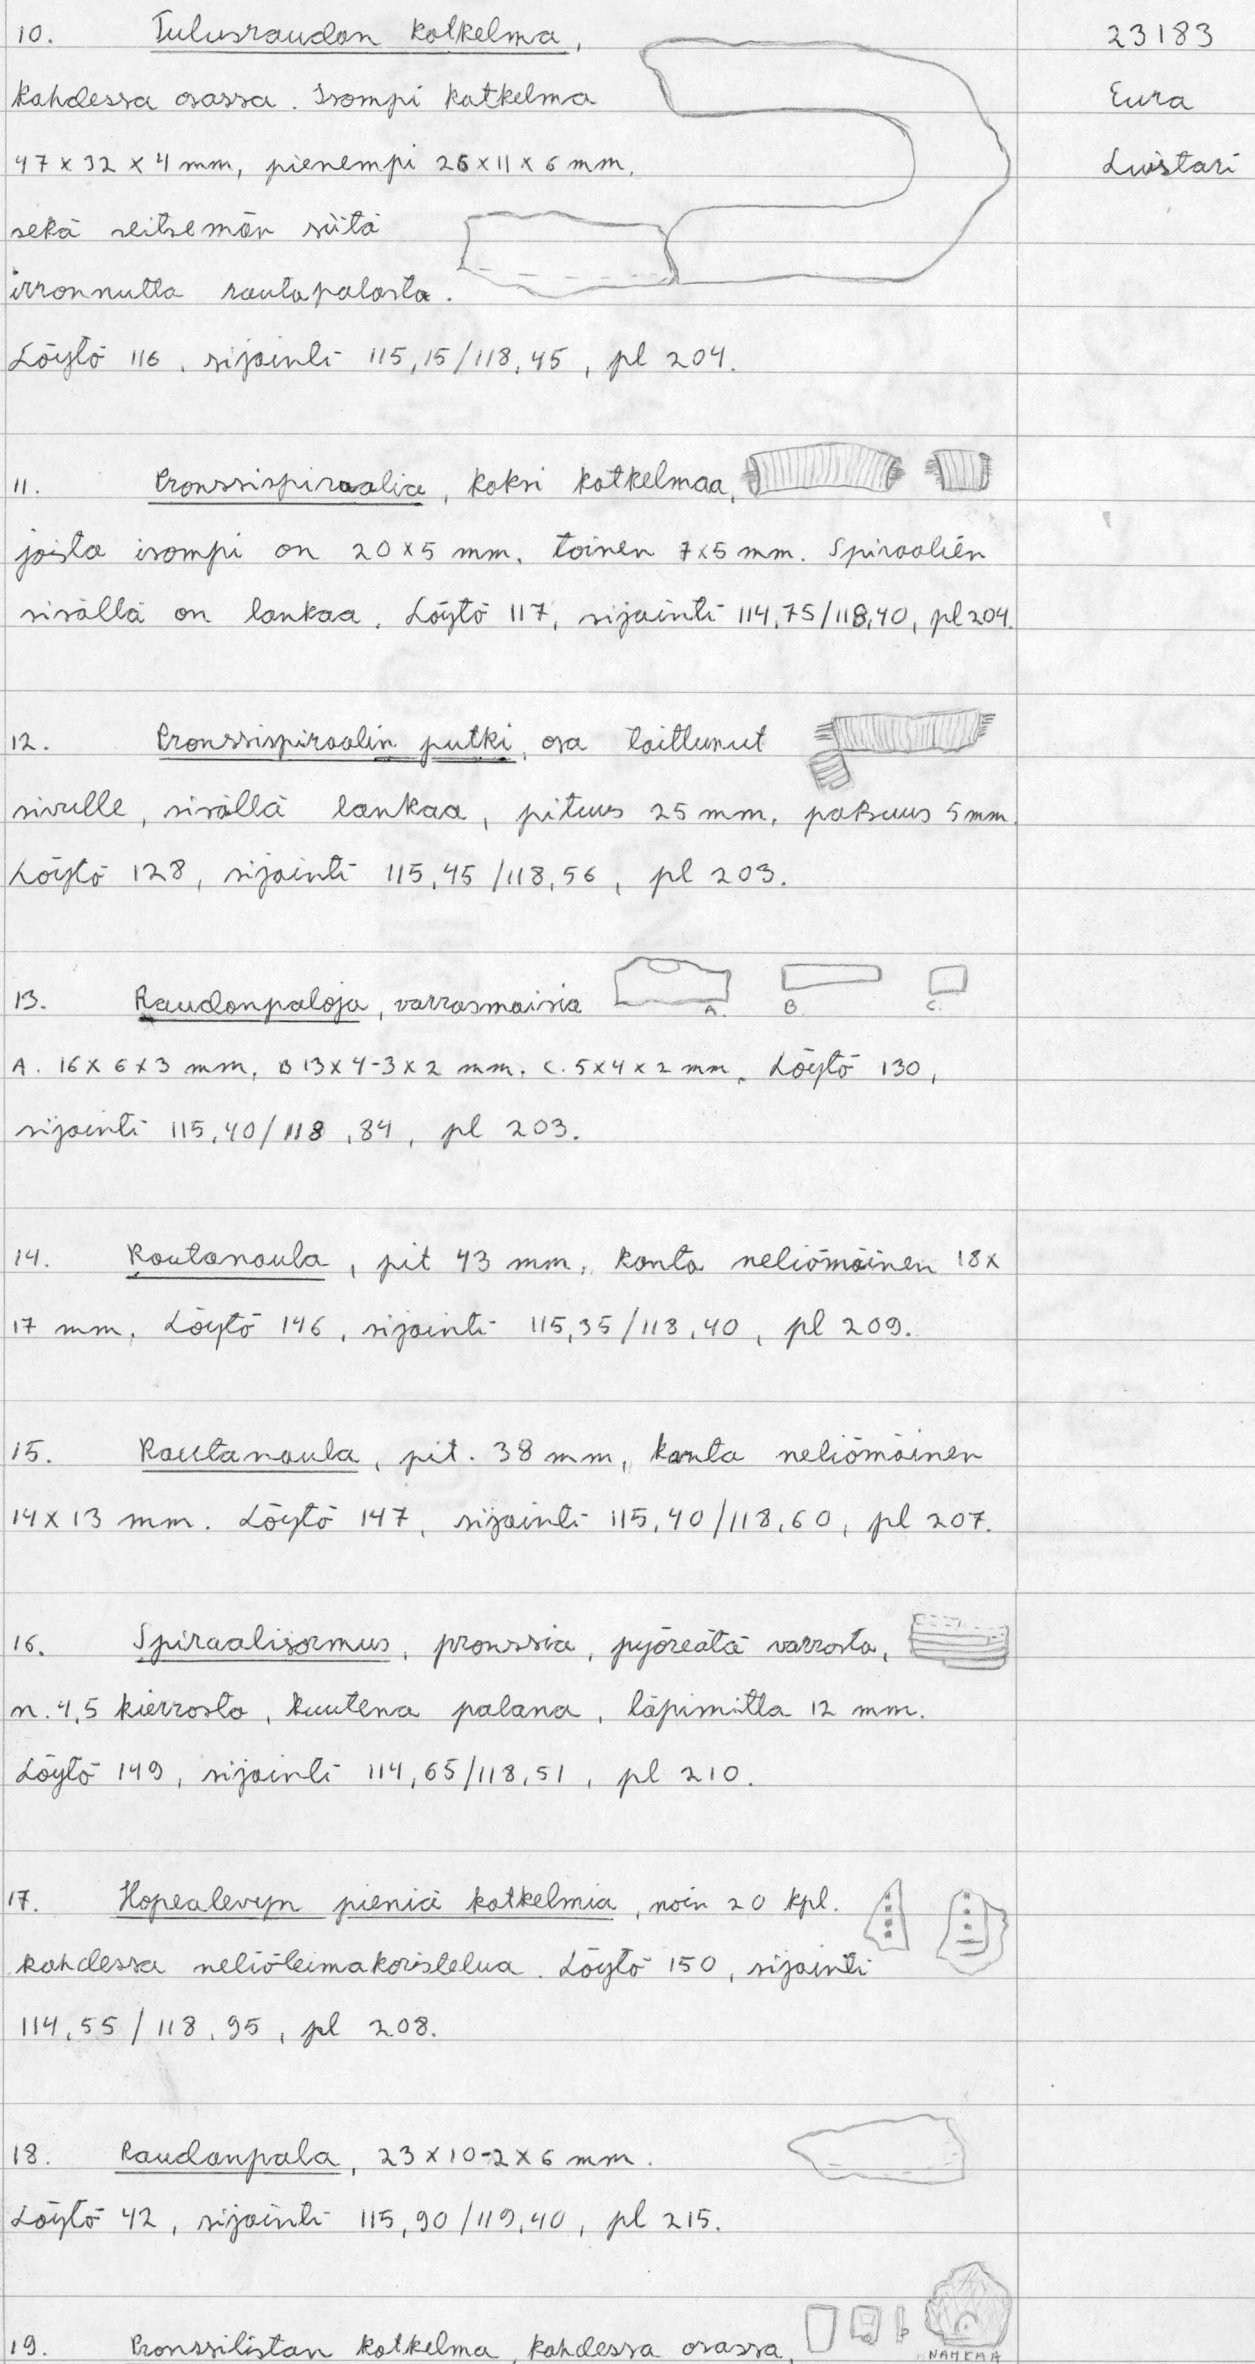 10. Tulusraudan katkelma,
23183
kahdessa osassa. Isompi katkelma
Eura
47 x 32 x 4 mm, pienempi 26 x 11 x 6 mm,
Luistari
sekä seitsemän siitä
irronnutta rautapalasta.
Löytö 116, sijainti 115,15/118,45, pl 204.
11. Pronssispiraalia, kaksi katkelmaa,
joista isompi on 20 x 5 mm, toinen 7 x 5 mm. Spiraalien
sisällä on lankaa. Löytö 117, sijainti 114,75/118,40, pl 204.
12. Pronssispiraalin putki, osa taittunut
sivulle, sisällä lankaa, pituus 25 mm, paksuus 5 mm.
Löytö 128, sijainti 115,45/118,56, pl 203.
13. Raudanpaloja, varrasmaisia
A. B. C.
A. 16 x 6 x 3 mm, B 13 x 4-3 x 2 mm. C. 5 x 4 x 2 mm. Löytö 130,
sijainti 115,40/118,84, pl 203.
14. Rautanaula, pit 43 mm, kanta neliömäinen 18 x
17 mm. Löytö 146, sijainti 115,35/118,40, pl 209.
15. Rautanaula, pit. 38 mm, kanta neliömäinen
14 x 13 mm. Löytö 147, sijainti 115,40/118,60, pl 207.
16. Spiraalisormus, pronssia, pyöreätä varrasta,
n. 4,5 kierrosta, kuutena palana, läpimitta 12 mm.
Löytö 149, sijainti 114,65/118,51, pl 210.
17. Hopealevyn pieniä katkelmia, noin 20 kpl.
kahdessa neliöleimakoristelua. Löytö 150, sijainti
114,55/118,95, pl 208.
18. Raudanpala, 23 x 10-2 x 6 mm.
Löytö 42, sijainti 115,90/119,40, pl 215.
19. Pronssilistan katkelma, kahdessa osassa,
NAHKAA